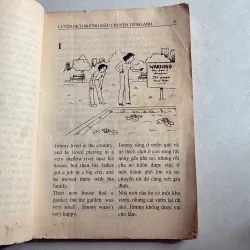 LUYỆN DỊCH NHỮNG MẨU CHUYỆN TIẾNG ANH
I
WARNING
Jimmy lived in the country,
and he loved playing in a
very shallow river near his
house; but then his father
got a job in a big city, and
he moved there with his
family.
Their new house had a
garden, but the garden was
very small. Jimmy wasn't
very happy.
Jimmy sống ở miền quê và
nó thích chơi ở con sông rất
nông gần nhà nó; nhưng rồi
cha nó kiếm được việc ở
một thành phố lớn và nó
chuyển tới đó cùng với gia
đình.
Nhà mới của họ có một khu
vườn, nhưng cái vườn lại rất
nhỏ. Jimmy không được vui
cho lắm.